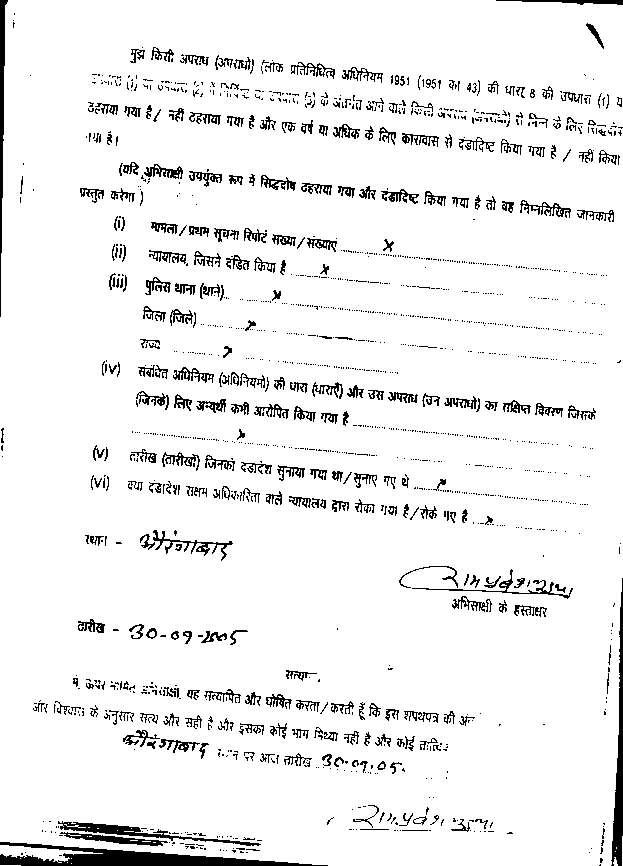 मुझे किसी अपराध (अपराधों) (लोक प्रतिनिधित्व अधिनियम 1951 (1951 का 43) की धारा 8 की उपधारा (1) य
उपधारा (1) या उपधारा (2) में निर्दिष्ट या उपधारा (3) के अंतर्गत आने वाले किसी अपराध (अपराधों) से भिन्न के लिए सिद्धदोष
ठहराया गया है / नहीं ठहराया गया है और एक वर्ष या अधिक के लिए कारावास से दंडादिष्ट किया गया है / नहीं किया
गया है।
(यदि अभिसाक्षी उपर्युक्त रूप में सिद्धदोष ठहराया गया और दंडादिष्ट किया गया है तो वह निम्नलिखित जानकारी
प्रस्तुत करेगा )
(i) मामला / प्रथम सूचना रिपोर्ट संख्या / संख्याएं x
(ii) न्यायालय, जिसने दंडित किया है x
(iii) पुलिस थाना (थाने) x
जिला (जिले) x
राज्य x
(iv) संबंधित अधिनियम (अधिनियमों) की धारा (धाराएँ) और उस अपराध (उन अपराधों) का संक्षिप्त विवरण जिसके
(जिनके) लिए अभ्यर्थी कभी आरोपित किया गया है
x
(v) तारीख (तारीखों) जिनको दंडादेश सुनाया गया था / सुनाए गए थे x
(vi) क्या दंडादेश सक्षम अधिकारिता वाले न्यायालय द्वारा रोका गया है / रोके गए है x
स्थान - औरंगाबाद
अभिसाक्षी के हस्ताक्षर
तारीख - 30-09-2005
सत्या
मैं, ऊपर नामित अभिसाक्षी, यह सत्यापित और घोषित करता / करती हूँ कि इस शपथपत्र की अंत
और विश्वास के अनुसार सत्य और सही है और इसका कोई भाग मिथ्या नहीं है और कोई तात्वि
औरंगाबाद स्थान पर आज तारीख 30.09.05.